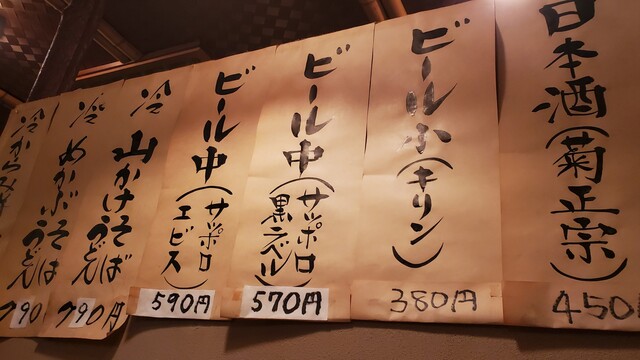 日本酒(菊正宗)
450
ビール小(キリン)
380円
ビール中(サッポロ黒ラベル)
570円
ビール中(サッポロエビス)
590円
冷 山かけそばうどん
790円
冷 めかぶそばうどん
790
冷 からみ